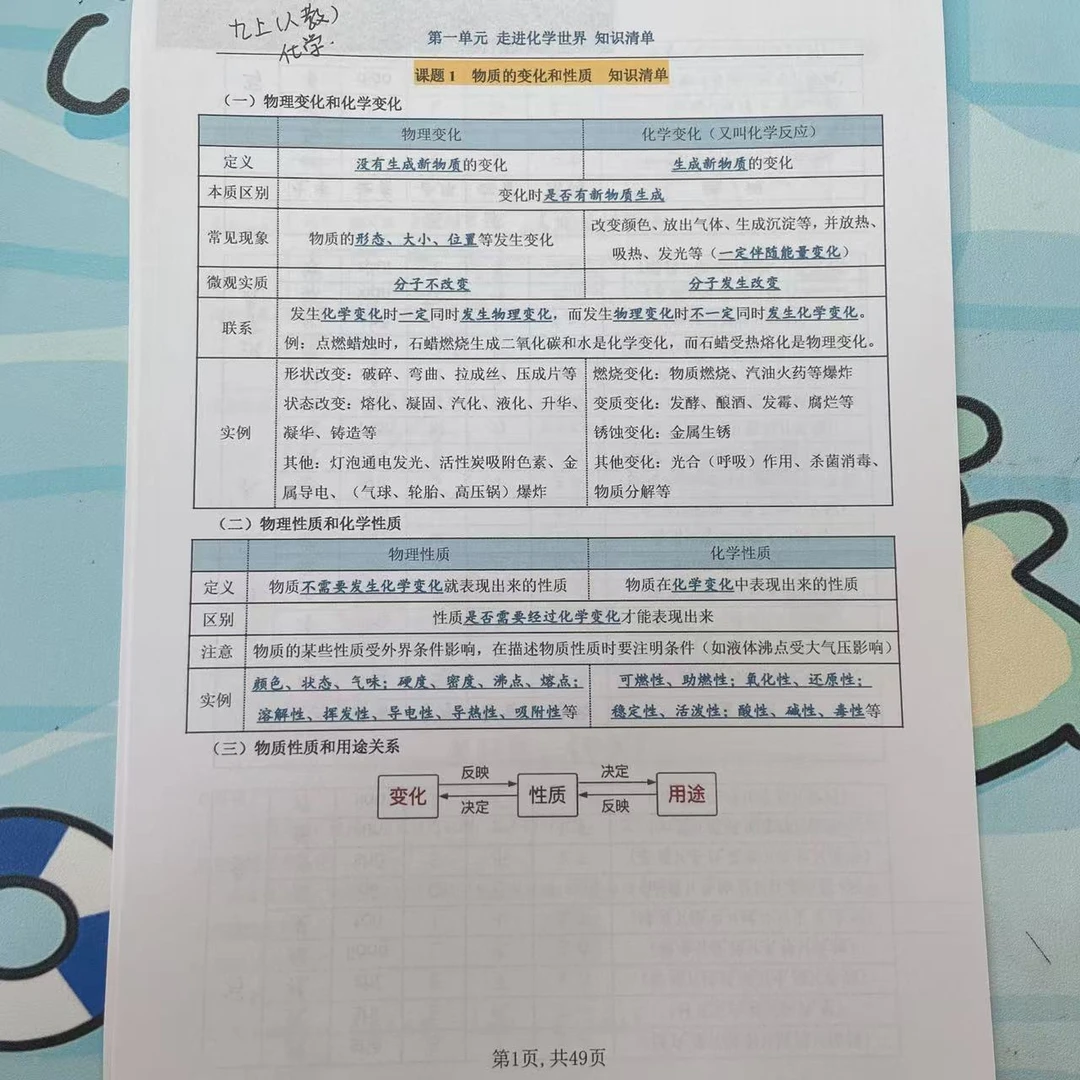 九上(人教)
化学.
第一单元 走进化学世界 知识清单
课题1 物质的变化和性质 知识清单
（一）物理变化和化学变化
物理变化 化学变化（又叫化学反应）
定义 没有生成新物质的变化 生成新物质的变化
本质区别 变化时是否有新物质生成
常见现象 物质的形态、大小、位置等发生变化 改变颜色、放出气体、生成沉淀等，并放热、
吸热、发光等（一定伴随能量变化）
微观实质 分子不改变 分子发生改变
联系 发生化学变化时一定同时发生物理变化，而发生物理变化时不一定同时发生化学变化。
例：点燃蜡烛时，石蜡燃烧生成二氧化碳和水是化学变化，而石蜡受热熔化是物理变化。
实例 形状改变：破碎、弯曲、拉成丝、压成片等 燃烧变化：物质燃烧、汽油火药等爆炸
状态改变：熔化、凝固、汽化、液化、升华、 变质变化：发酵、酿酒、发霉、腐烂等
凝华、铸造等 锈蚀变化：金属生锈
其他：灯泡通电发光、活性炭吸附色素、金 其他变化：光合（呼吸）作用、杀菌消毒、
属导电、（气球、轮胎、高压锅）爆炸 物质分解等
（二）物理性质和化学性质
物理性质 化学性质
定义 物质不需要发生化学变化就表现出来的性质 物质在化学变化中表现出来的性质
区别 性质是否需要经过化学变化才能表现出来
注意 物质的某些性质受外界条件影响，在描述物质性质时要注明条件（如液体沸点受大气压影响）
实例 颜色、状态、气味；硬度、密度、沸点、熔点； 可燃性、助燃性；氧化性、还原性；
溶解性、挥发性、导电性、导热性、吸附性等 稳定性、活泼性；酸性、碱性、毒性等
（三）物质性质和用途关系
反映 决定
变化 性质 用途
决定 反映
第1页,共49页